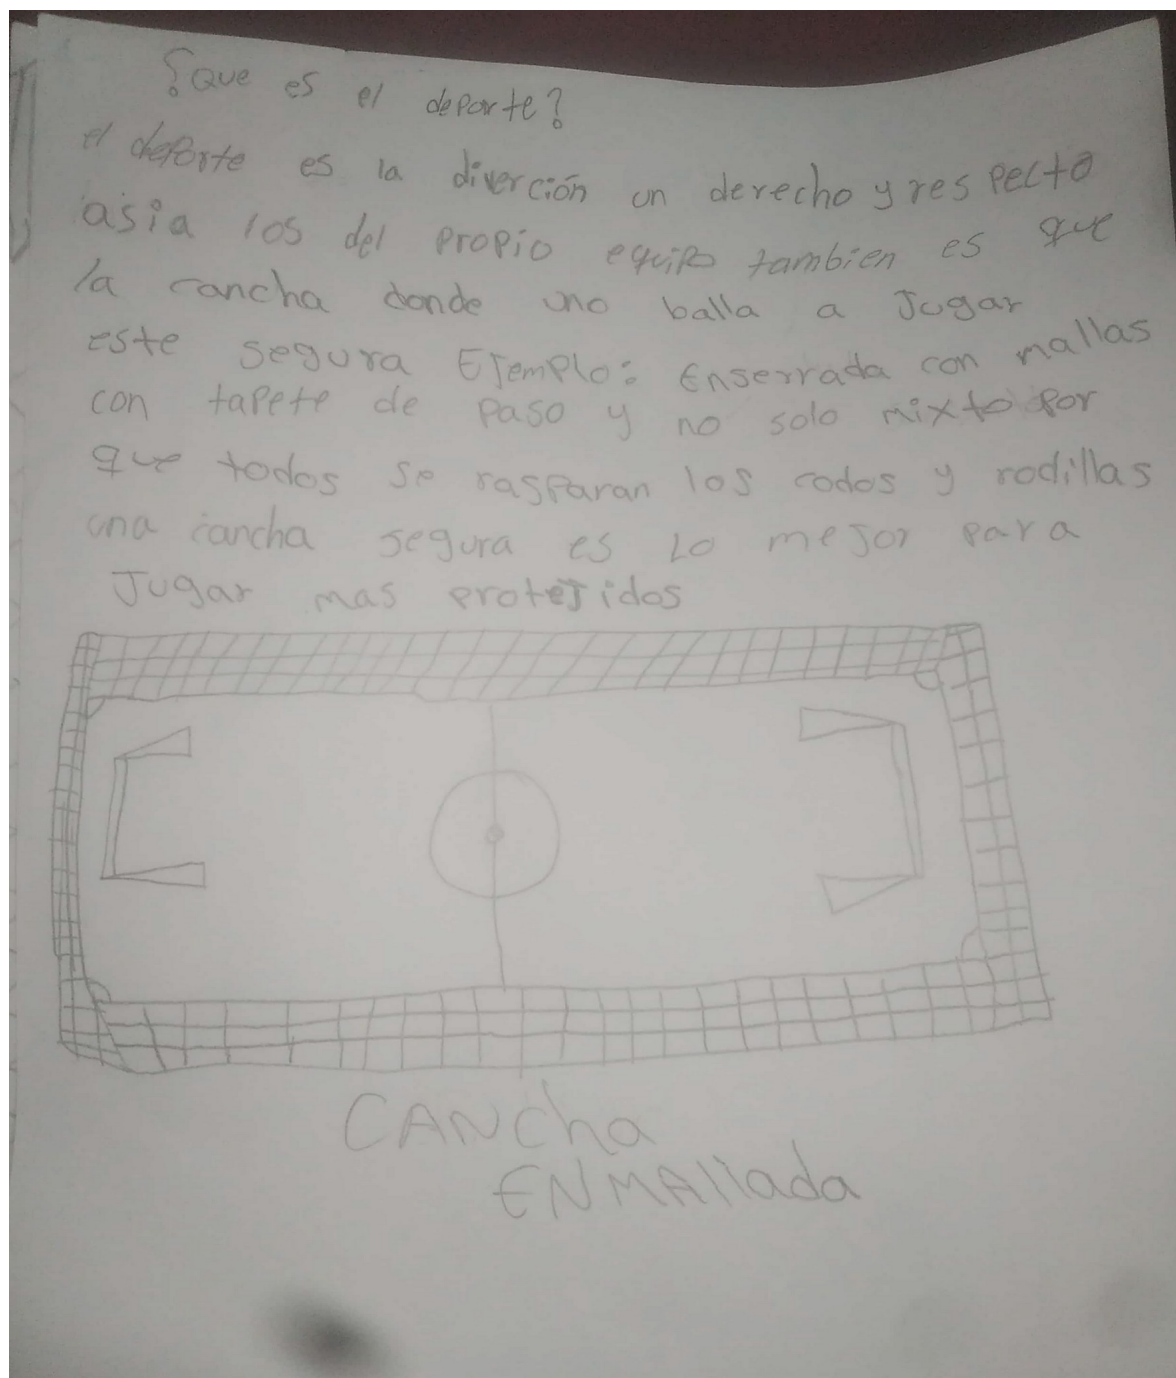 ¿que es el deporte?
el deporte es la diverción un derecho y respecto
asia los del propio equipo tambien es que
la cancha donde uno balla a Jugar
este segura EJemplo: Enserrada con mallas
con tapete de paso y no solo mixto por
que todos se rasparan los codos y rodillas
una cancha segura es lo mejor para
Jugar mas proteJidos
CANcha
ENMAllada